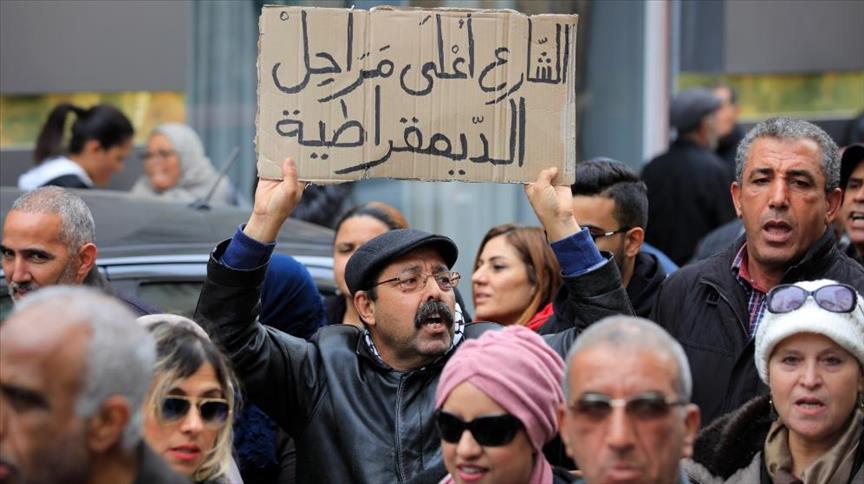 الشّارع أعْلَى مَرَاحِل
الدّيمقراطية